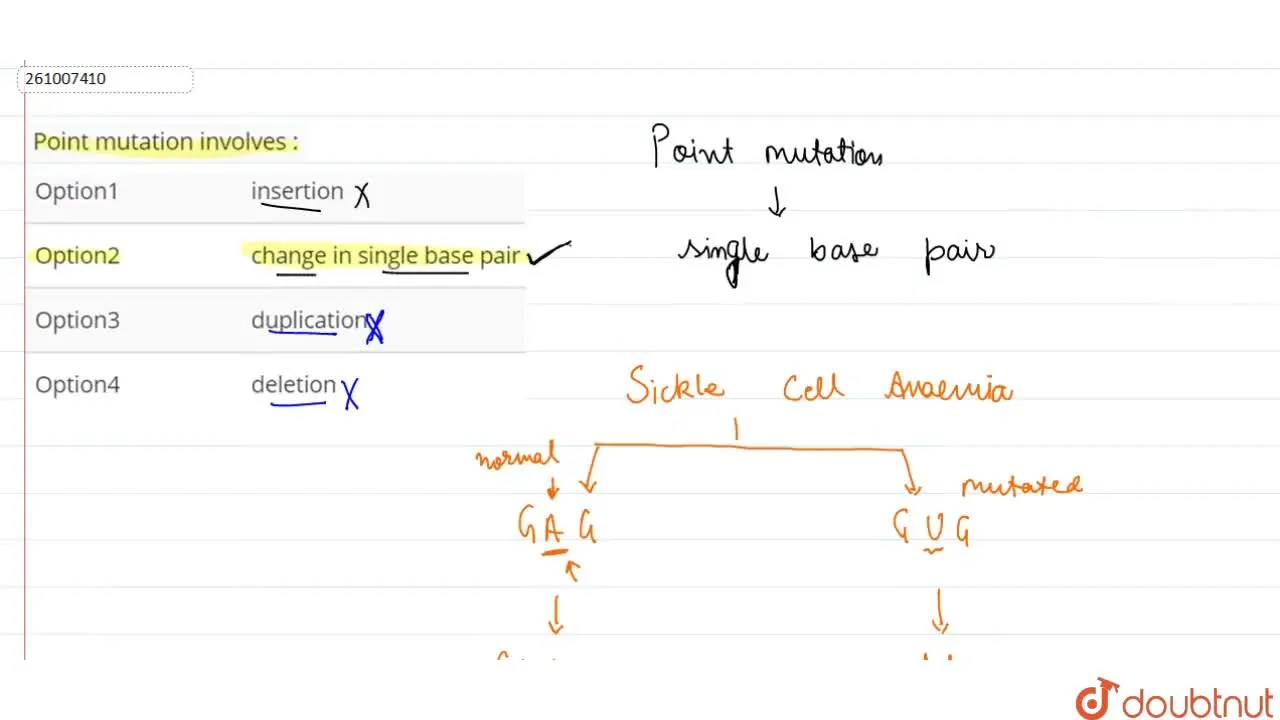 261007410
Point mutation involves :
Option1 insertion X
Option2 change in single base pair ✓
Option3 duplication X
Option4 deletion X
Point mutation
↓
single base pair
Sickle Cell Anaemia
normal
mutated
GAG
GUG
doubtnut